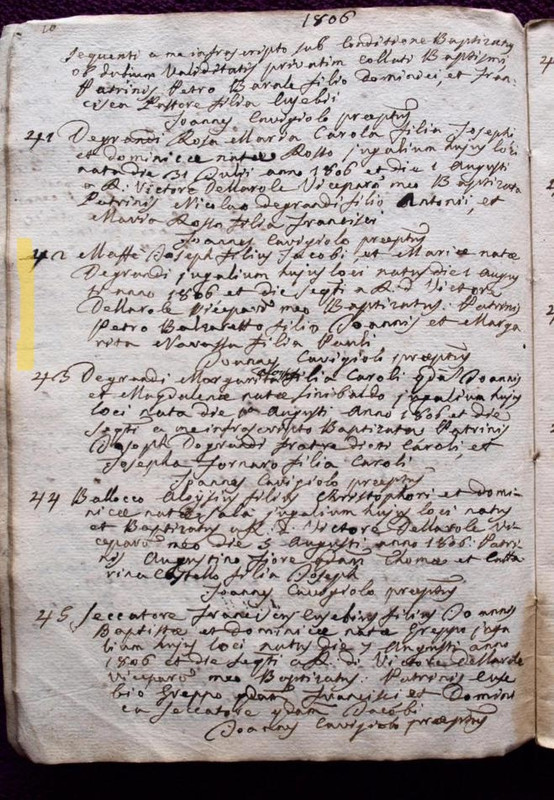 10 1806
sequenti a me infrascripto sub Conditione Baptizatus
ob dubium Validitatis privatim collati Baptismi
Patrinis Petro Barale filio Dominici, et Fran-
cisca Pastore filia Eusebii
Joannes Cavigiolo præptus
41 Degrandi Rosa Maria Carola filia Josephi
et Dominicæ natæ Rosso jugalium hujus loci
nata die 31 Julii anno 1806 et die 1 Augusti
a R. Victore Dellarole Viceparo meo Baptizata
Patrinis Nicolao Degrandi filio Antonii, et
Maria Rosa filia Francisci
Joannes Cavigiolo præptus
42 Maffè Joseph filius Jacobi, et Mariæ natæ
Degrandi jugalium hujus loci natus die 1 Augus
ti anno 1806 et die seqti a R. d. Victore
Dellarole Viceparo meo Baptizatus. Patrinis
Petro Balzaretto filio Joannis et Marga
rita Navassa filia Pauli
Joannes Cavigiolo præptus
43 Degrandi Margarita filia Caroli qdm Joannis
et Magdalenæ natæ Sinibaldo jugalium hujus
loci nata die Augusti Anno 1806 et die
seqti a me infrascripto Baptizata Patrinis
Joseph Degrandi fratre dicti Caroli et
Josepha Fornaro filia Caroli
Joannes Cavigiolo præptus
44 Ballocco Aloysius filius Christophori et Domi-
nicæ natæ Sala jugalium hujus loci natus
et Baptizatus a R. D. Victore Dellarole Vi-
ceparo meo die 5 Augusti anno 1806 Patri-
nis Augustino Fiore qdam Thomæ et Catta
rina Costallo filia Joseph
Joannes Cavigiolo præptus
45 Seccatore Franciscus Eusebius filius Joannis
Baptistæ et Dominicæ natæ Greppo juga
lium hujus loci natus die 7 Augusti anno
1806 et die seqti a R. d. Victore Dellarole
Viceparo meo Baptizatus. Patrinis Euse
bio Greppo qdam Francisci et Domini
ca Seccatore qdam Jacobi
Joannes Cavigiolo præptus